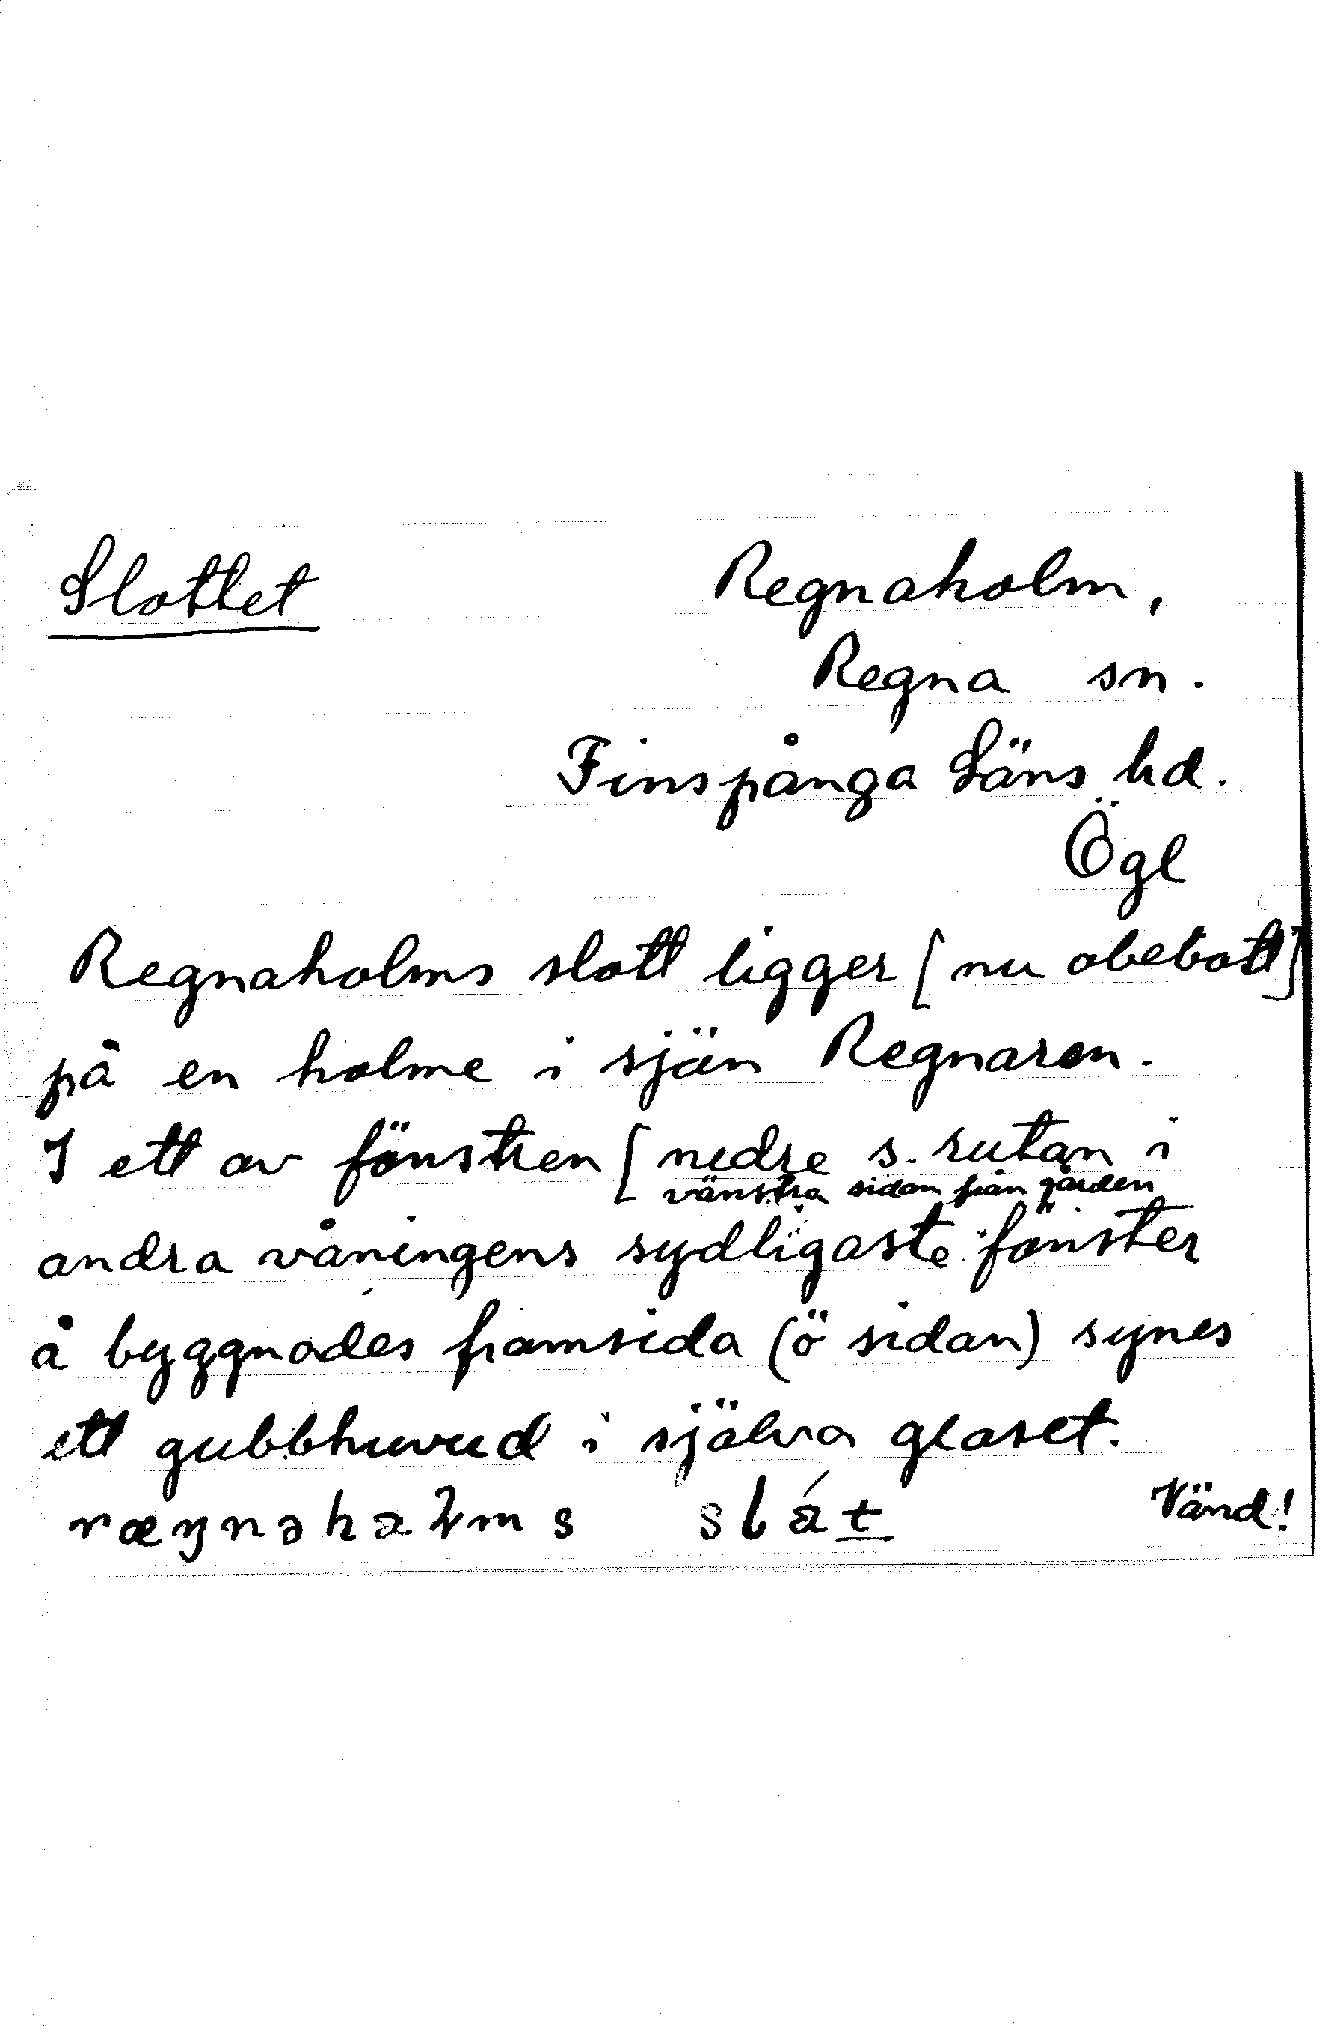 Slottet
Regnaholm,
Regna sn.
Finspånga Läns hd.
Ögl
Regnaholms slott ligger [nu obebott]
på en holme i sjön Regnaren.
I ett av fönstren [nedre s. rutan i
vänstra sidan från gården
andra våningens sydligaste fönster
å byggnades framsida (ö sidan) synes
ett gubbhuvud i själva glaset.
Vänd!